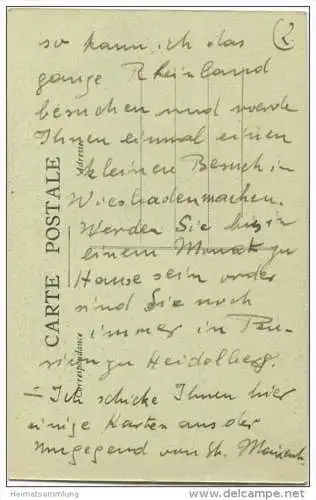 (2
so kann ich das
ganze Rheinland
besuchen und werde
Ihnen einmal einen
kleinen Besuch in
Wiesbaden machen.
Werden Sie bis in
einem Monat zu
Hause sein oder
sind Sie noch
immer in Pen-
sion zu Heidelberg.
= Ich schicke Ihnen hier
einige Karten aus der
Umgegend von St.
CARTE POSTALE
Correspondance
Adresse
Heimatsammlung
www.ansichtskartenversand.com